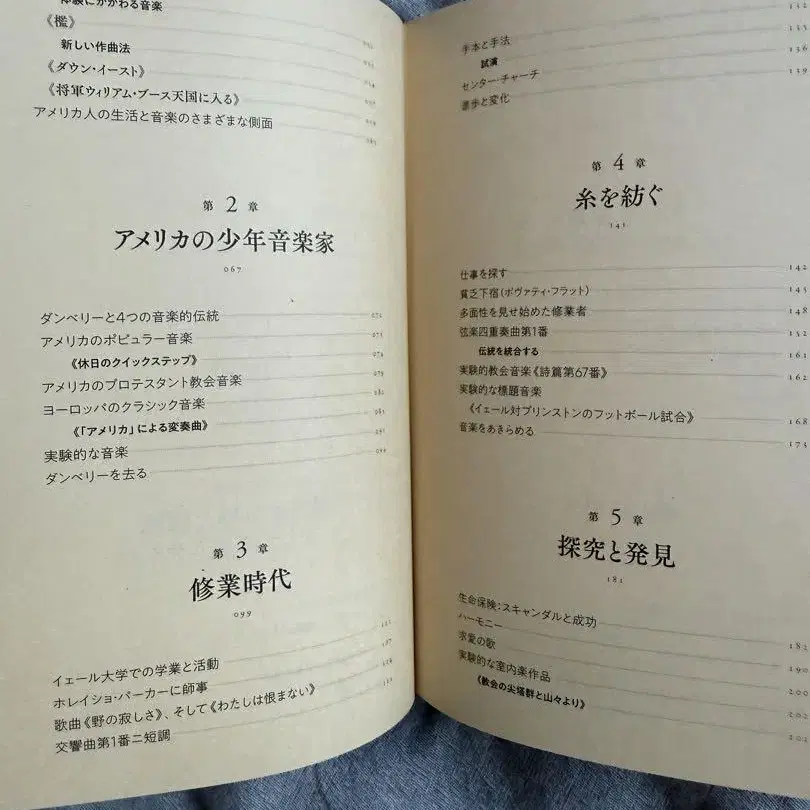 体験にかかわる音楽
《檻》
新しい作曲法
《ダウン・イースト》
《将軍ウィリアム・ブース天国に入る》
アメリカ人の生活と音楽のさまざまな側面
第 2 章
アメリカの少年音楽家
067
ダンベリーと4つの音楽的伝統
アメリカのポピュラー音楽
《休日のクイックステップ》
アメリカのプロテスタント教会音楽
ヨーロッパのクラシック音楽
《「アメリカ」による変奏曲》
実験的な音楽
ダンベリーを去る
第 3 章
修業時代
099
イェール大学での学業と活動
ホレイショ・パーカーに師事
歌曲《野の寂しさ》、そして《わたしは恨まない》
交響曲第1番ニ短調
132
手本と手法 135
試演 136
センター・チャーチ 139
進歩と変化
第 4 章
糸を紡ぐ
141
仕事を探す 142
貧乏下宿(ポヴァティ・フラット) 145
多面性を見せ始めた修業者 148
弦楽四重奏曲第1番 152
伝統を統合する 161
実験的教会音楽《詩篇第67番》 162
実験的な標題音楽
《イェール対プリンストンのフットボール試合》 168
音楽をあきらめる 173
第 5 章
探究と発見
181
生命保険:スキャンダルと成功 182
ハーモニー 190
求愛の歌 200
実験的な室内楽作品
《教会の尖塔群と山々より》 202